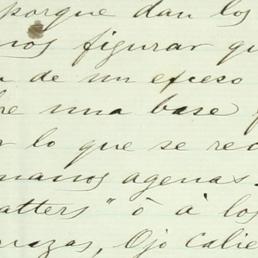 porque dan los
nos figurar qu
a de un exceso
re una base
r lo que se rec
manos agenas.
atters" ó á los
nuzas, Ojo Calie